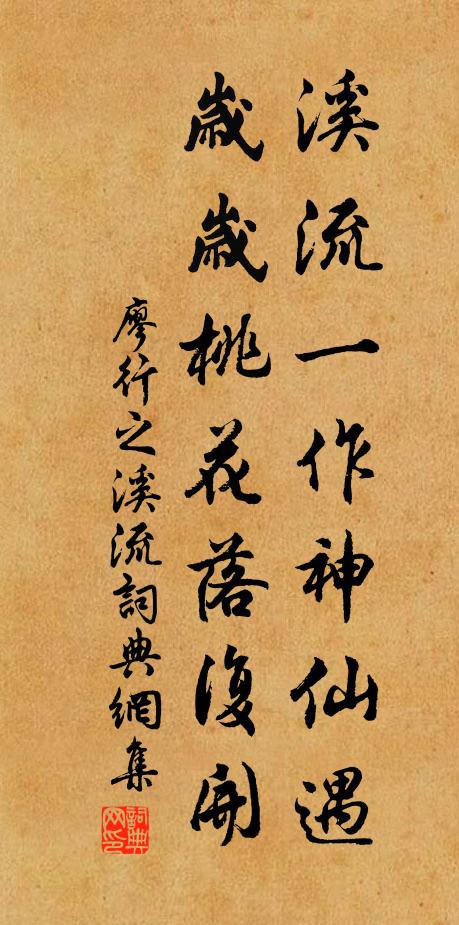 溪流一作神仙遇
歲歲桃花落復開
廖行之溪流詞典網集
詞典網印